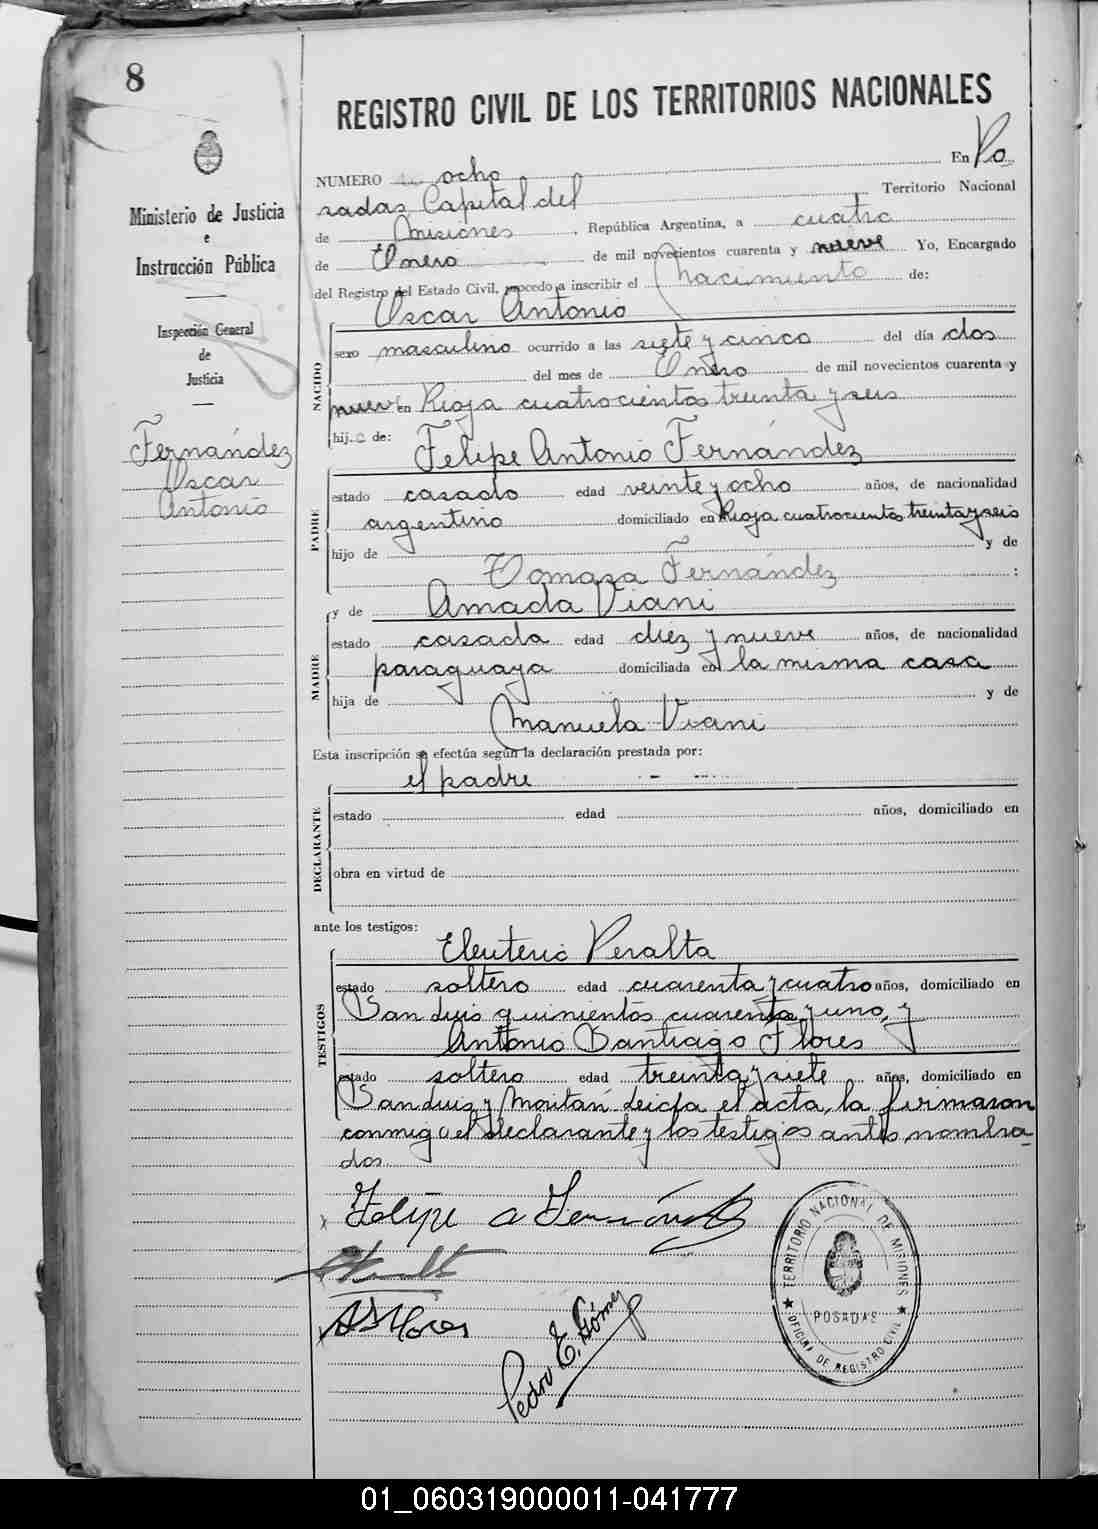 8
REGISTRO CIVIL DE LOS TERRITORIOS NACIONALES
Ministerio de Justicia
e
Instrucción Pública
Inspección General
de
Justicia
Fernández
Oscar
Antonio
NUMERO ocho En Po
sadas Capital del Territorio Nacional
de Misiones, República Argentina, a cuatro
de Enero de mil novecientos cuarenta y nueve Yo, Encargado
del Registro del Estado Civil, procedo a inscribir el Nacimiento de:
Oscar Antonio
NACIDO
sexo masculino ocurrido a las siete y cinco del día dos
del mes de Enero de mil novecientos cuarenta y
nueve en Rioja cuatrocientos treinta y seis
hijo de: Felipe Antonio Fernández
PADRE
estado casado edad veinte y ocho años, de nacionalidad
argentino domiciliado en Rioja cuatrocientos treinta y seis
hijo de y de
Tomasa Fernández ;
y de Amada Viani
MADRE
estado casada edad diez y nueve años, de nacionalidad
paraguaya domiciliada en la misma casa
hija de y de
Manuela Viani
Esta inscripción se efectúa según la declaración prestada por:
el padre
DECLARANTE
estado edad años, domiciliado en
obra en virtud de
ante los testigos:
Eleuterio Peralta
TESTIGOS
estado soltero edad cuarenta y cuatro años, domiciliado en
San Luis quinientos cuarenta y uno, y
Antonio Santiago Flores
estado soltero edad treinta y siete años, domiciliado en
San Luis y Moitán Leida el acta, la firmaron
conmigo el declarante y los testigos antes nombra-
dos.
Felipe A Fernández
A S Flores
Pedro E. Gómez
TERRITORIO NACIONAL DE MISIONES
POSADAS
OFICINA DE REGISTRO CIVIL
01_060319000011-041777